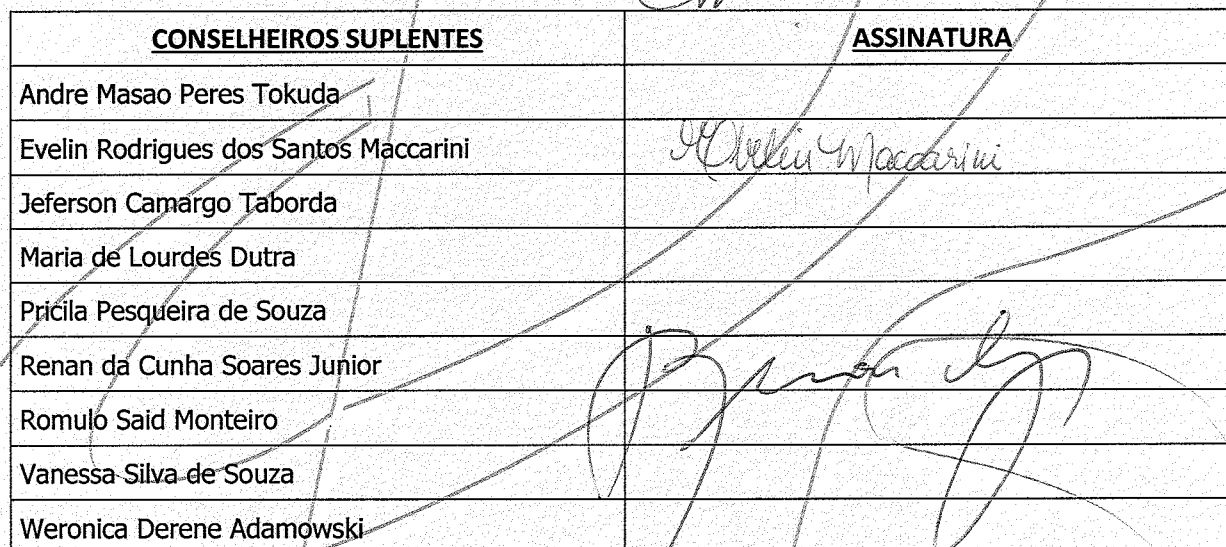 CONSELHEIROS SUPLENTES ASSINATURA
Andre Masao Peres Tokuda
Evelin Rodrigues dos Santos Maccarini Evelin Maccarini
Jeferson Camargo Taborda
Maria de Lourdes Dutra
Pricila Pesqueira de Souza
Renan da Cunha Soares Junior Renan
Romulo Said Monteiro
Vanessa Silva de Souza
Weronica Derene Adamowski